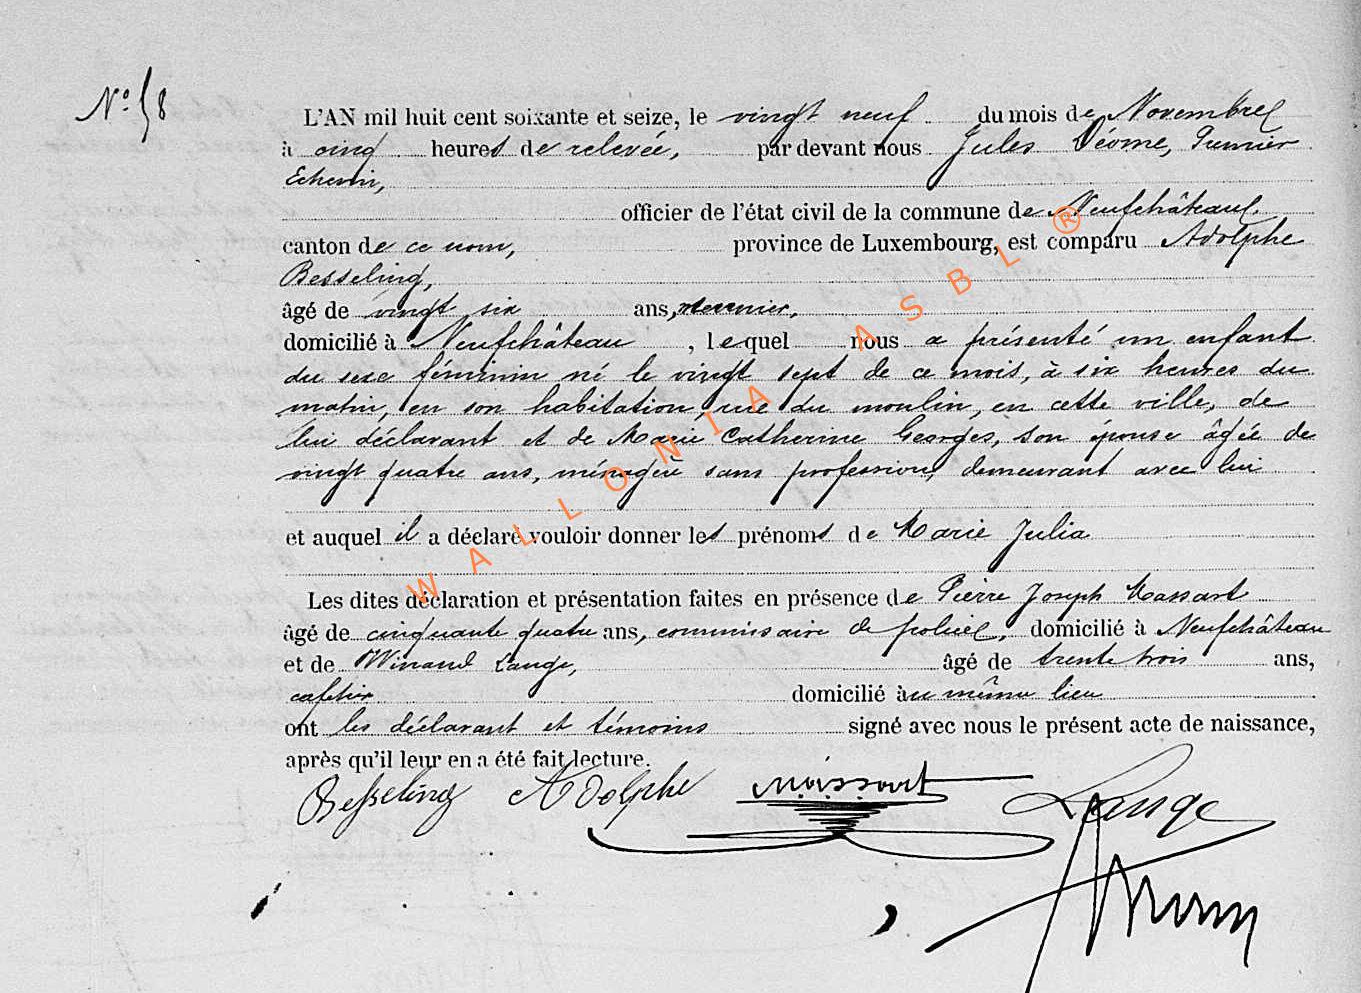 N° 58
L'AN mil huit cent soixante et seize, le vingt neuf du mois de Novembre
à cinq heures de relevée, par devant nous Jules Déome, Premier
Echevin,
officier de l'état civil de la commune de Neufchâteau,
canton de ce nom, province de Luxembourg, est comparu Adolphe
Besseling,
âgé de vingt six ans, meunier,
domicilié à Neufchâteau, lequel nous a présenté un enfant
du sexe féminin né le vingt sept de ce mois, à six heures du
matin, en son habitation, rue du moulin, en cette ville, de
lui déclarant et de Marie Catherine Georges, son épouse âgée de
vingt quatre ans, ménagère sans profession, demeurant avec lui
et auquel il a déclaré vouloir donner les prénoms de Marie Julia
Les dites déclaration et présentation faites en présence de Pierre Joseph Massart
âgé de cinquante quatre ans, commissaire de police, domicilié à Neufchâteau
et de Winand Lange, âgé de trente trois ans,
cafetier domicilié au même lieu
ont les déclarant et témoins signé avec nous le présent acte de naissance,
après qu'il leur en a été fait lecture.
Besseling Adolphe Massart Lange
WALLONIA ASBL ®